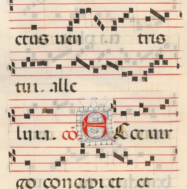 ctus uen tris
tui. alle
lu ia. co E Cce uir
go concipi et et